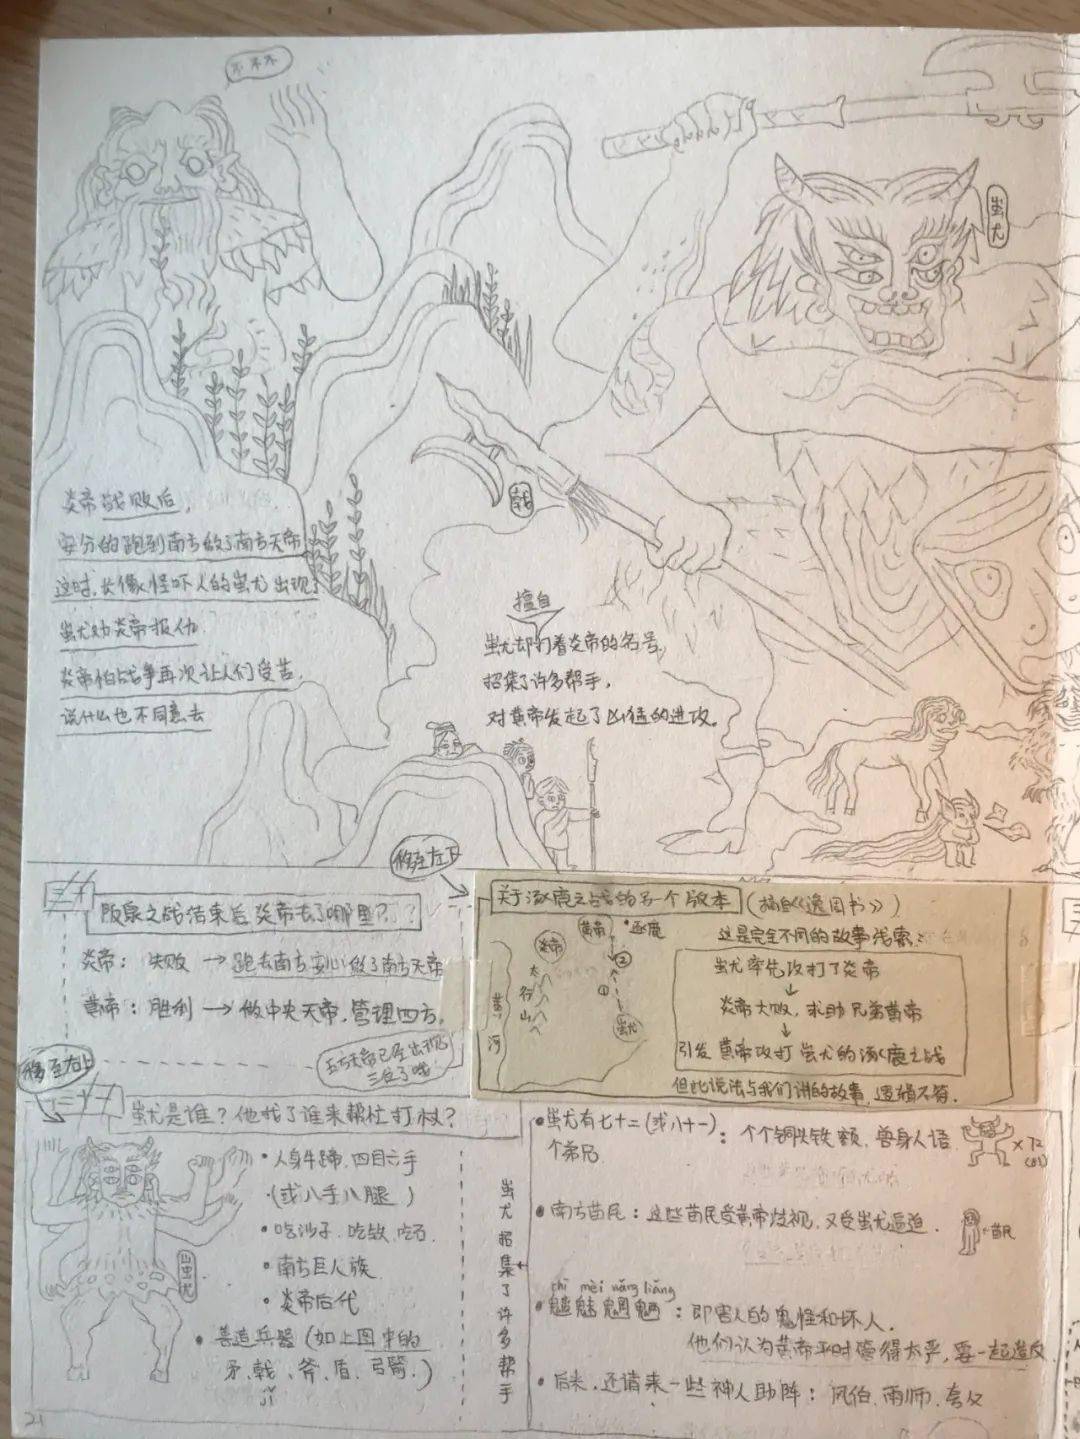 不不不
蚩尤
戟
炎帝战败后,
安分的跑到南方做了南方天帝
这时,长像怪吓人的蚩尤出现了
蚩尤劝炎帝报仇
炎帝怕战争再次让人们受苦,
说什么也不同意去
擅自
蚩尤却打着炎帝的名号,
招集了许多帮手,
对黄帝发起了凶猛的进攻。
移至左下
阪泉之战结束后炎帝去了哪里?
炎帝:失败→跑去南方安心做了南方天帝
黄帝:胜利→做中央天帝,管理四方。
五方天帝已经出现
三位了哦
关于逐鹿之战的另一个版本(摘自《逸周书》)
这是完全不同的故事线索:
炎帝
黄帝
逐鹿
太行山
黄河
①
②
蚩尤
蚩尤率先攻打了炎帝
↓
炎帝大败,求助兄弟黄帝
↓
引发黄帝攻打蚩尤的逐鹿之战
但此说法与我们讲的故事,逻辑不符.
移至右上
蚩尤是谁?他找了谁来帮忙打架?
蚩尤
•人身牛蹄,四目六手
(或八手八腿)
•吃沙子、吃铁、吃石
•南方巨人族
•炎帝后代
•善造兵器(如上图中的
矛、戟、斧、盾、弓箭。)
jǐ
蚩尤招集了许多帮手
•蚩尤有七十二(或八十一)个弟兄:个个铜头铁额,兽身人语
×72
(81)
•南方苗民:这些苗民受黄帝歧视,又受蚩尤逼迫.
←苗民
chī mèi wǎng liǎng
•魑魅魍魉:即害人的鬼怪和坏人.
他们认为黄帝平时管得太严,要一起造反
•后来,还请来一些神人助阵:风伯、雨师、夸父
21